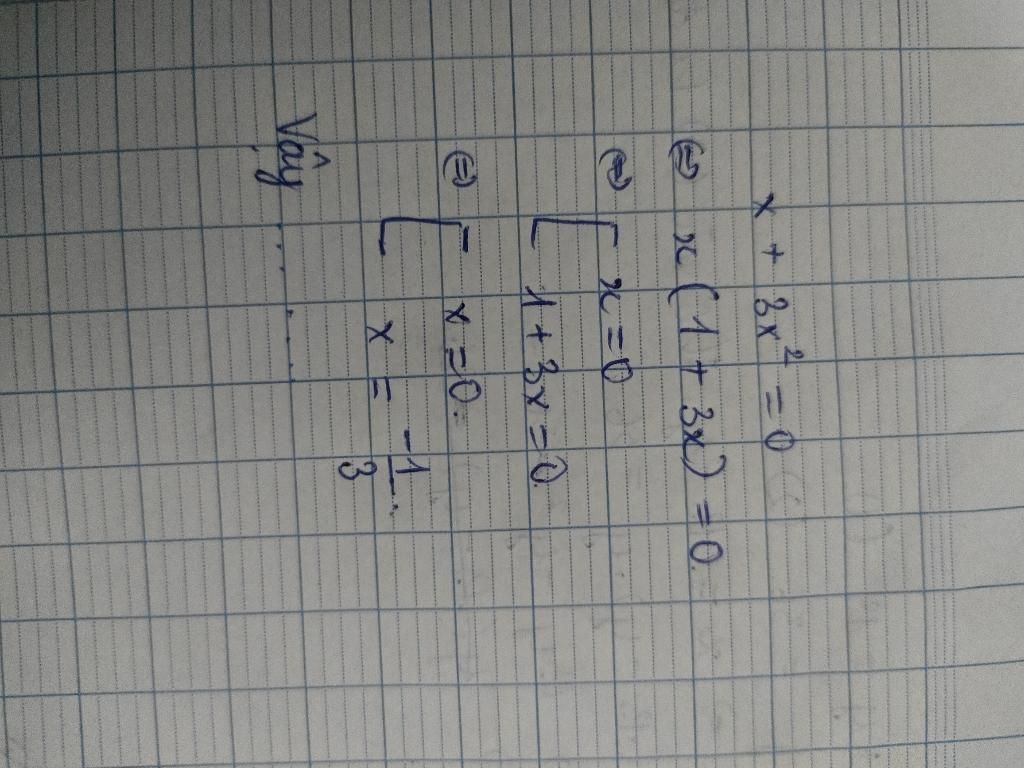 x + 3x² = 0
⇔ x(1 + 3x) = 0.
⇔ [ x = 0
1 + 3x = 0.
⇔ [ x = 0.
x = -1/3.
Vậy ........